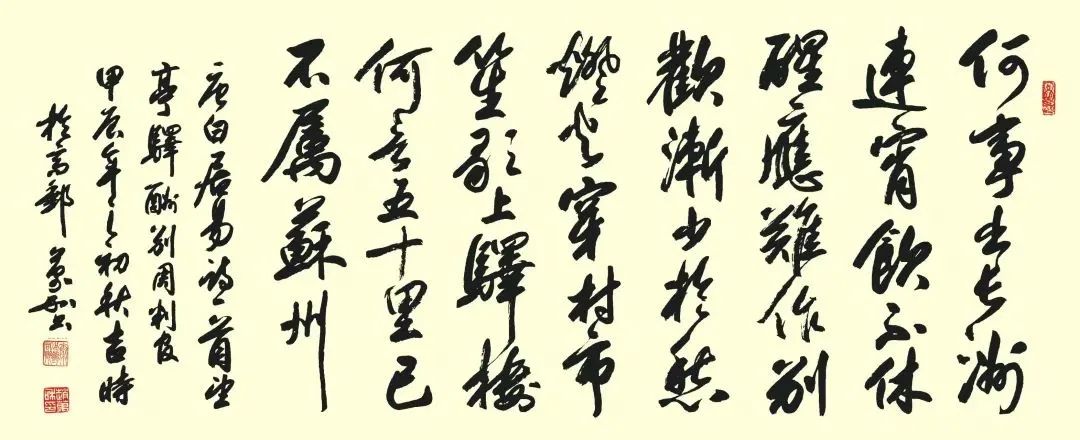 何事出長洲
連宵飲不休
醒應難作別
歡漸少於愁
燈火穿村市
笙歌上驛樓
何言五十里已
不屬蘇州
唐白居易詩一首望
亭驛酬別周判官
甲辰年之初秋吉時
於高郵